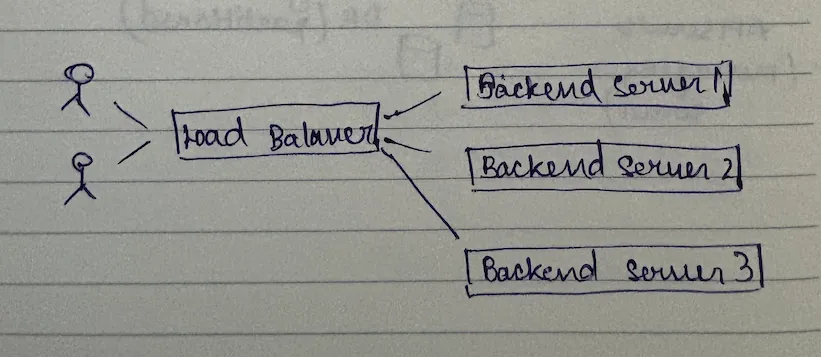 Load Balancer
Backend Server 1
Backend Server 2
Backend Server 3